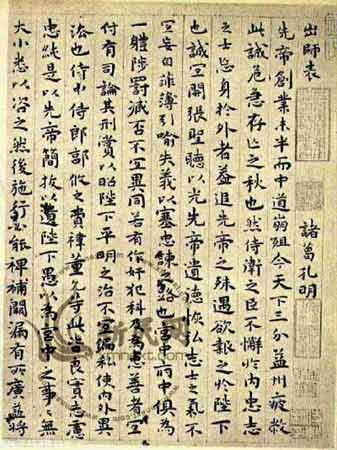 出師表 諸葛孔明
先帝創業未半而中道崩殂今天下三分益州疲敝
此誠危急存亡之秋也然侍衛之臣不懈於內忠志
之士忘身於外者蓋追先帝之殊遇欲報之於陛下
也誠宜開張聖聽以光先帝遺德恢弘志士之氣不
宜妄自菲薄引喻失義以塞忠諫之路也宮中府中俱為
一體陟罰臧否不宜異同若有作奸犯科及為忠善者宜
付有司論其刑賞以昭陛下平明之治不宜偏私使內外異
法也侍中侍郎郭攸之費禕董允等此皆良實志慮
忠純是以先帝簡拔以遺陛下愚以為宮中之事〻無
大小悉以咨之然後施行必能裨補闕漏有所廣益將
新民网